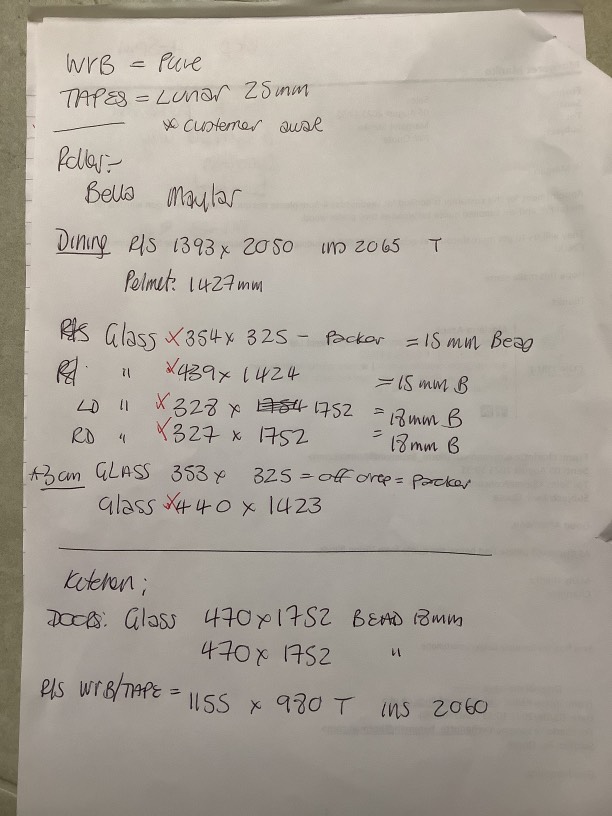 WVB = Pure
TAPES = Lunar 25mm
* customer awae
Roller:-
Bella Maylar
Dining R/S 1393 x 2050 ins 2065 T
Pelmet: 1427mm
R/S Glass x 354 x 325 - Packer = 15 mm Bead
" x 439 x 1424 = 15 mm B
LD " x 328 x 1752 = 18mm B
RD " x 327 x 1752 = 18mm B
GLASS 353 x 325 = off drop = Packer
Glass x 440 x 1423
Kitchen;
DOORS: Glass 470 x 1752 BEAD 18mm
470 x 1752 "
R/S WVB/TAPE = 1155 x 980 T ins 2060